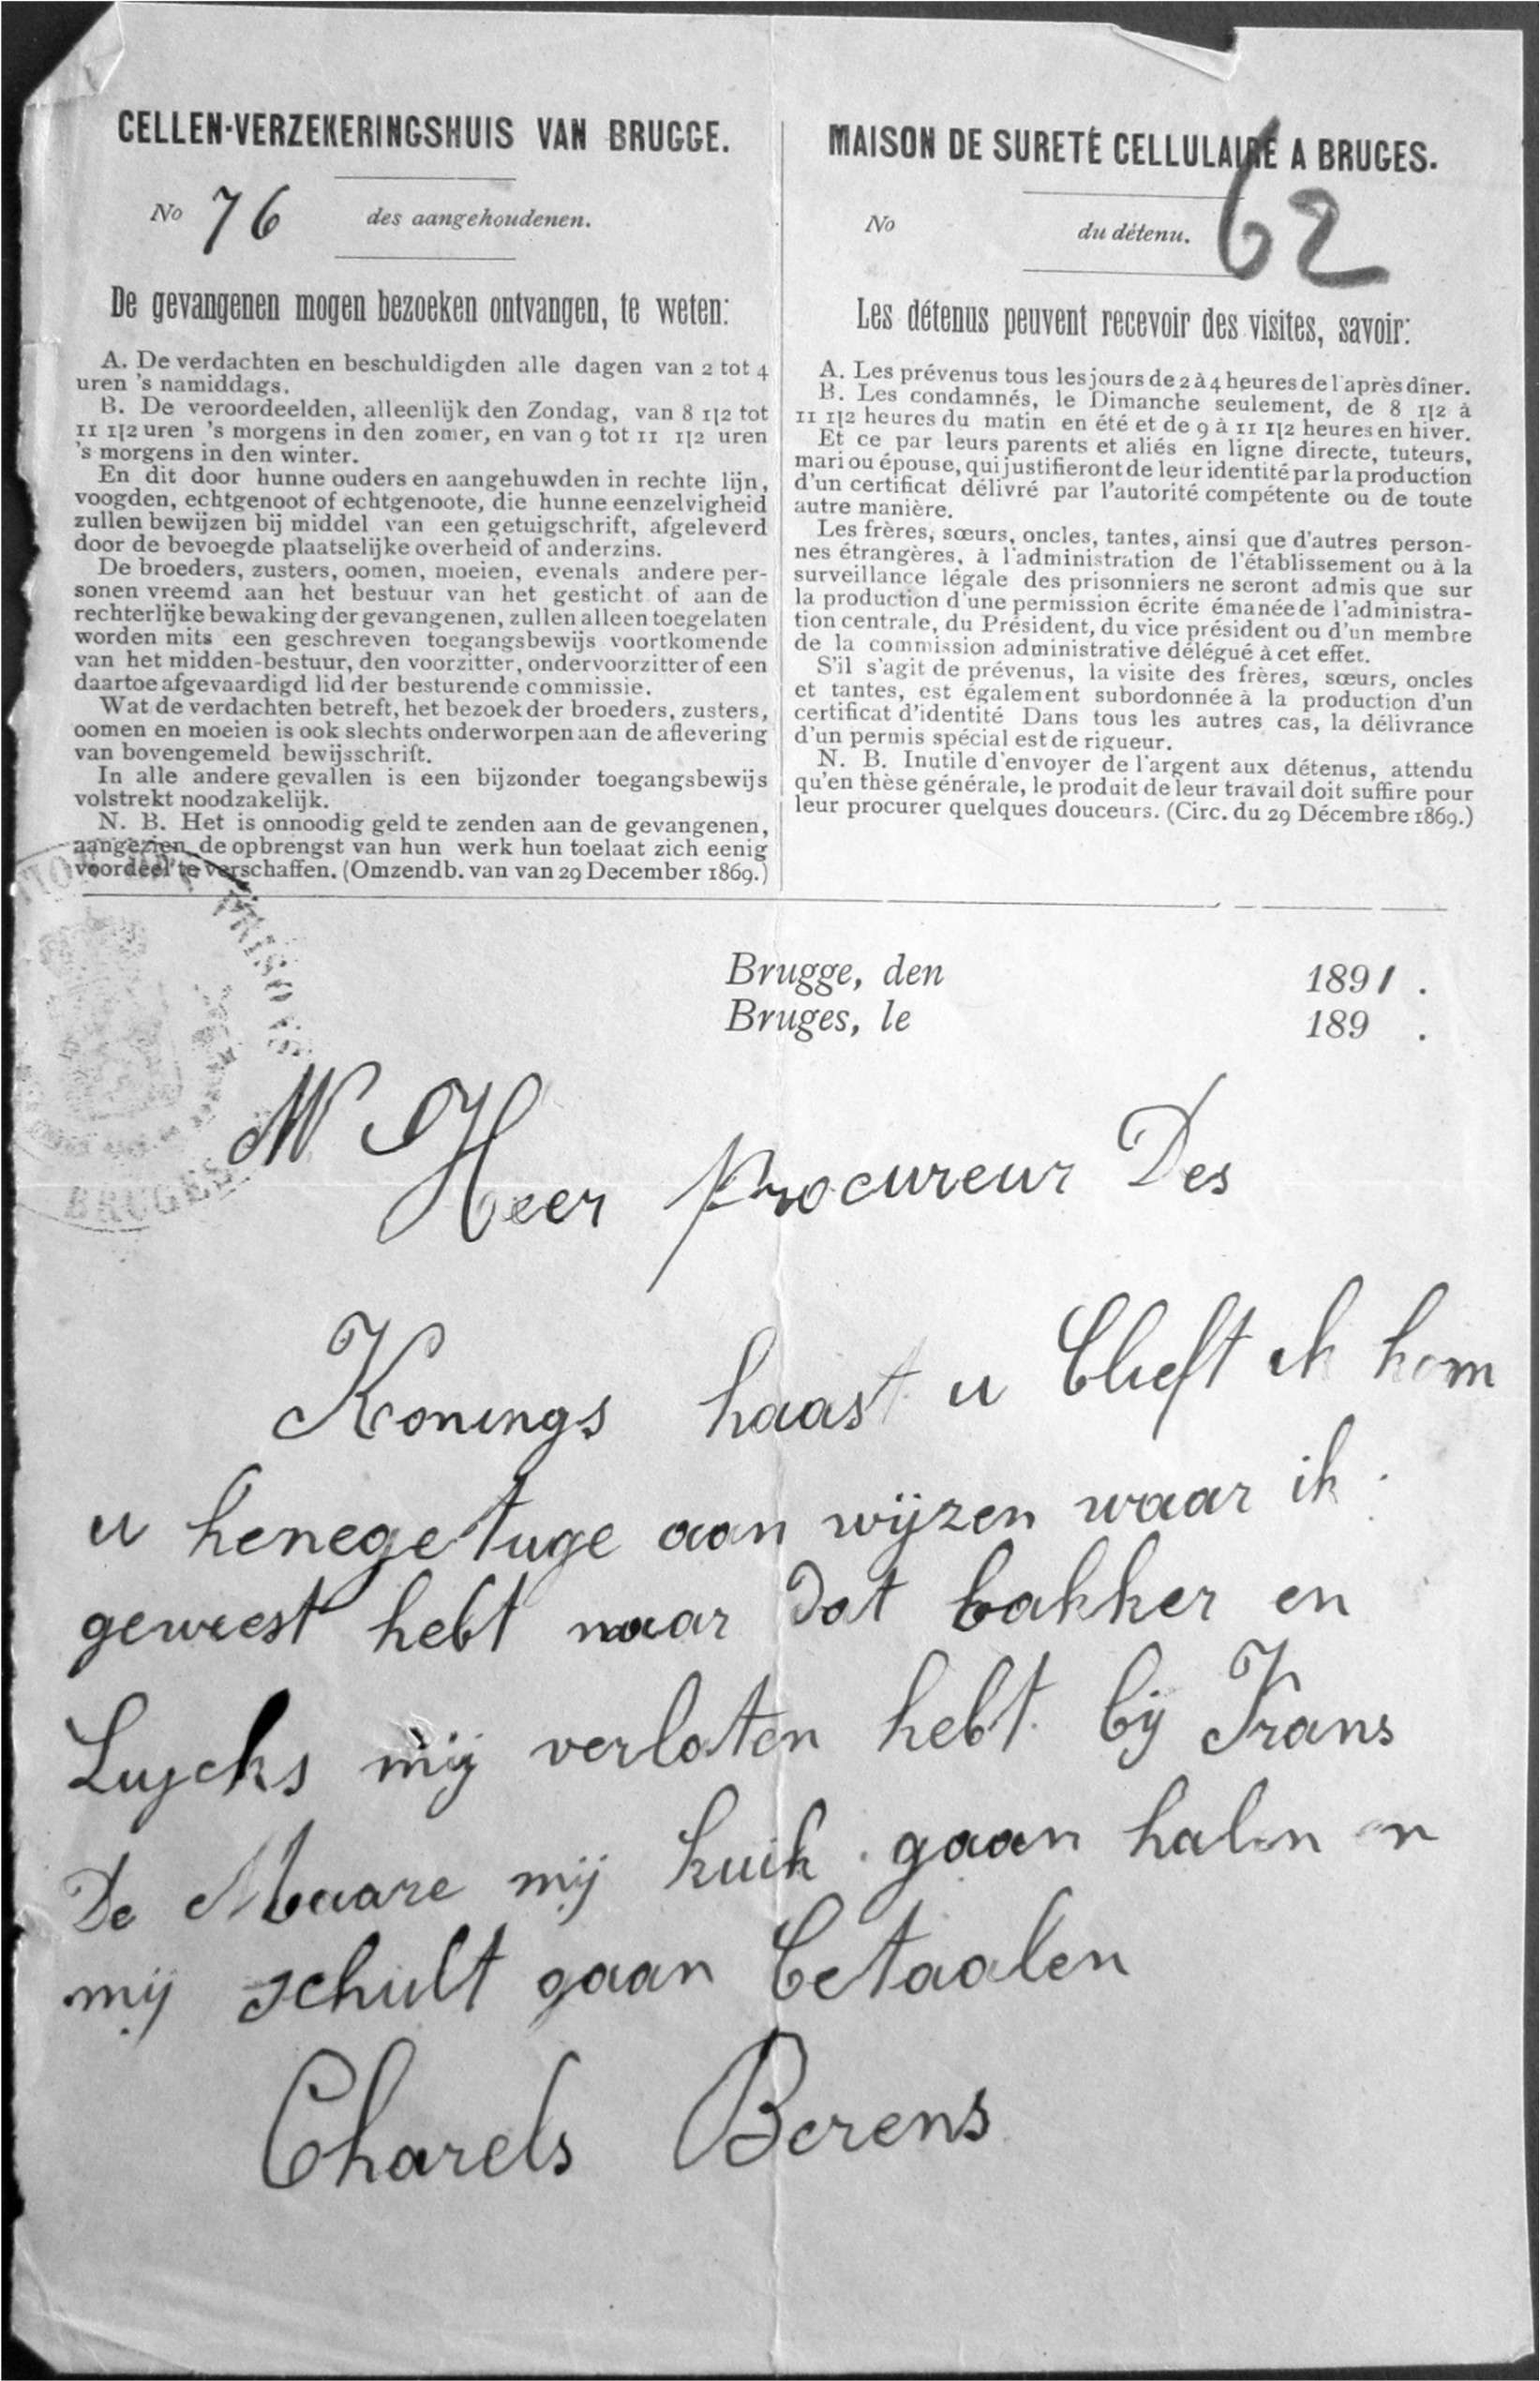 CELLEN-VERZEKERINGSHUIS VAN BRUGGE.
No 76 des aangehoudenen.
De gevangenen mogen bezoeken ontvangen, te weten:
A. De verdachten en beschuldigden alle dagen van 2 tot 4
uren 's namiddags.
B. De veroordeelden, alleenlijk den Zondag, van 8 1|2 tot
11 1|2 uren 's morgens in den zomer, en van 9 tot 11 1|2 uren
's morgens in den winter.
En dit door hunne ouders en aangehuwden in rechte lijn,
voogden, echtgenoot of echtgenoote, die hunne eenzelvigheid
zullen bewijzen bij middel van een getuigschrift, afgeleverd
door de bevoegde plaatselijke overheid of anderzins.
De broeders, zusters, oomen, moeien, evenals andere per-
sonen vreemd aan het bestuur van het gesticht of aan de
rechterlijke bewaking der gevangenen, zullen alleen toegelaten
worden mits een geschreven toegangsbewijs voortkomende
van het midden-bestuur, den voorzitter, ondervoorzitter of een
daartoe afgevaardigd lid der besturende commissie.
Wat de verdachten betreft, het bezoek der broeders, zusters,
oomen en moeien is ook slechts onderworpen aan de aflevering
van bovengemeld bewijsschrift.
In alle andere gevallen is een bijzonder toegangsbewijs
volstrekt noodzakelijk.
N. B. Het is onnoodig geld te zenden aan de gevangenen,
aangezien de opbrengst van hun werk hun toelaat zich eenig
voordeel te verschaffen. (Omzendb. van van 29 December 1869.)
MAISON DE SURETÉ CELLULAIRE A BRUGES.
No du détenu. 62
Les détenus peuvent recevoir des visites, savoir:
A. Les prévenus tous les jours de 2 à 4 heures de l'après dîner.
B. Les condamnés, le Dimanche seulement, de 8 1|2 à
11 1|2 heures du matin en été et de 9 à 11 1|2 heures en hiver.
Et ce par leurs parents et aliés en ligne directe, tuteurs,
mari ou épouse, qui justifieront de leur identité par la production
d'un certificat délivré par l'autorité compétente ou de toute
autre manière.
Les frères, sœurs, oncles, tantes, ainsi que d'autres person-
nes étrangères, à l'administration de l'établissement ou à la
surveillance légale des prisonniers ne seront admis que sur
la production d'une permission écrite émanée de l'administra-
tion centrale, du Président, du vice président ou d'un membre
de la commission administrative délégué à cet effet.
S'il s'agit de prévenus, la visite des frères, sœurs, oncles
et tantes, est également subordonnée à la production d'un
certificat d'identité Dans tous les autres cas, la délivrance
d'un permis spécial est de rigueur.
N. B. Inutile d'envoyer de l'argent aux détenus, attendu
qu'en thèse générale, le produit de leur travail doit suffire pour
leur procurer quelques douceurs. (Circ. du 29 Décembre 1869.)
PRISONS
BRUGES
Brugge, den 1891.
Bruges, le 189 .
M
Heer procureur Des
Konings haast u blieft ik kom
u henege tuge aan wijzen waar ik
geweest hebt naar Dat bakker en
Luycks mij verlaten hebt bij Frans
De Maare mij kuik gaan halen en
mij schult gaan betaalen
Charels Berens